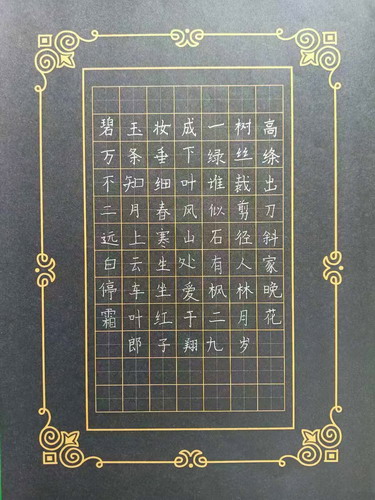 碧玉妆成一树高
万条垂下绿丝绦
不知细叶谁裁出
二月春风似剪刀
远上寒山石径斜
白云生处有人家
停车坐爱枫林晚
霜叶红于二月花
郎子翔九岁